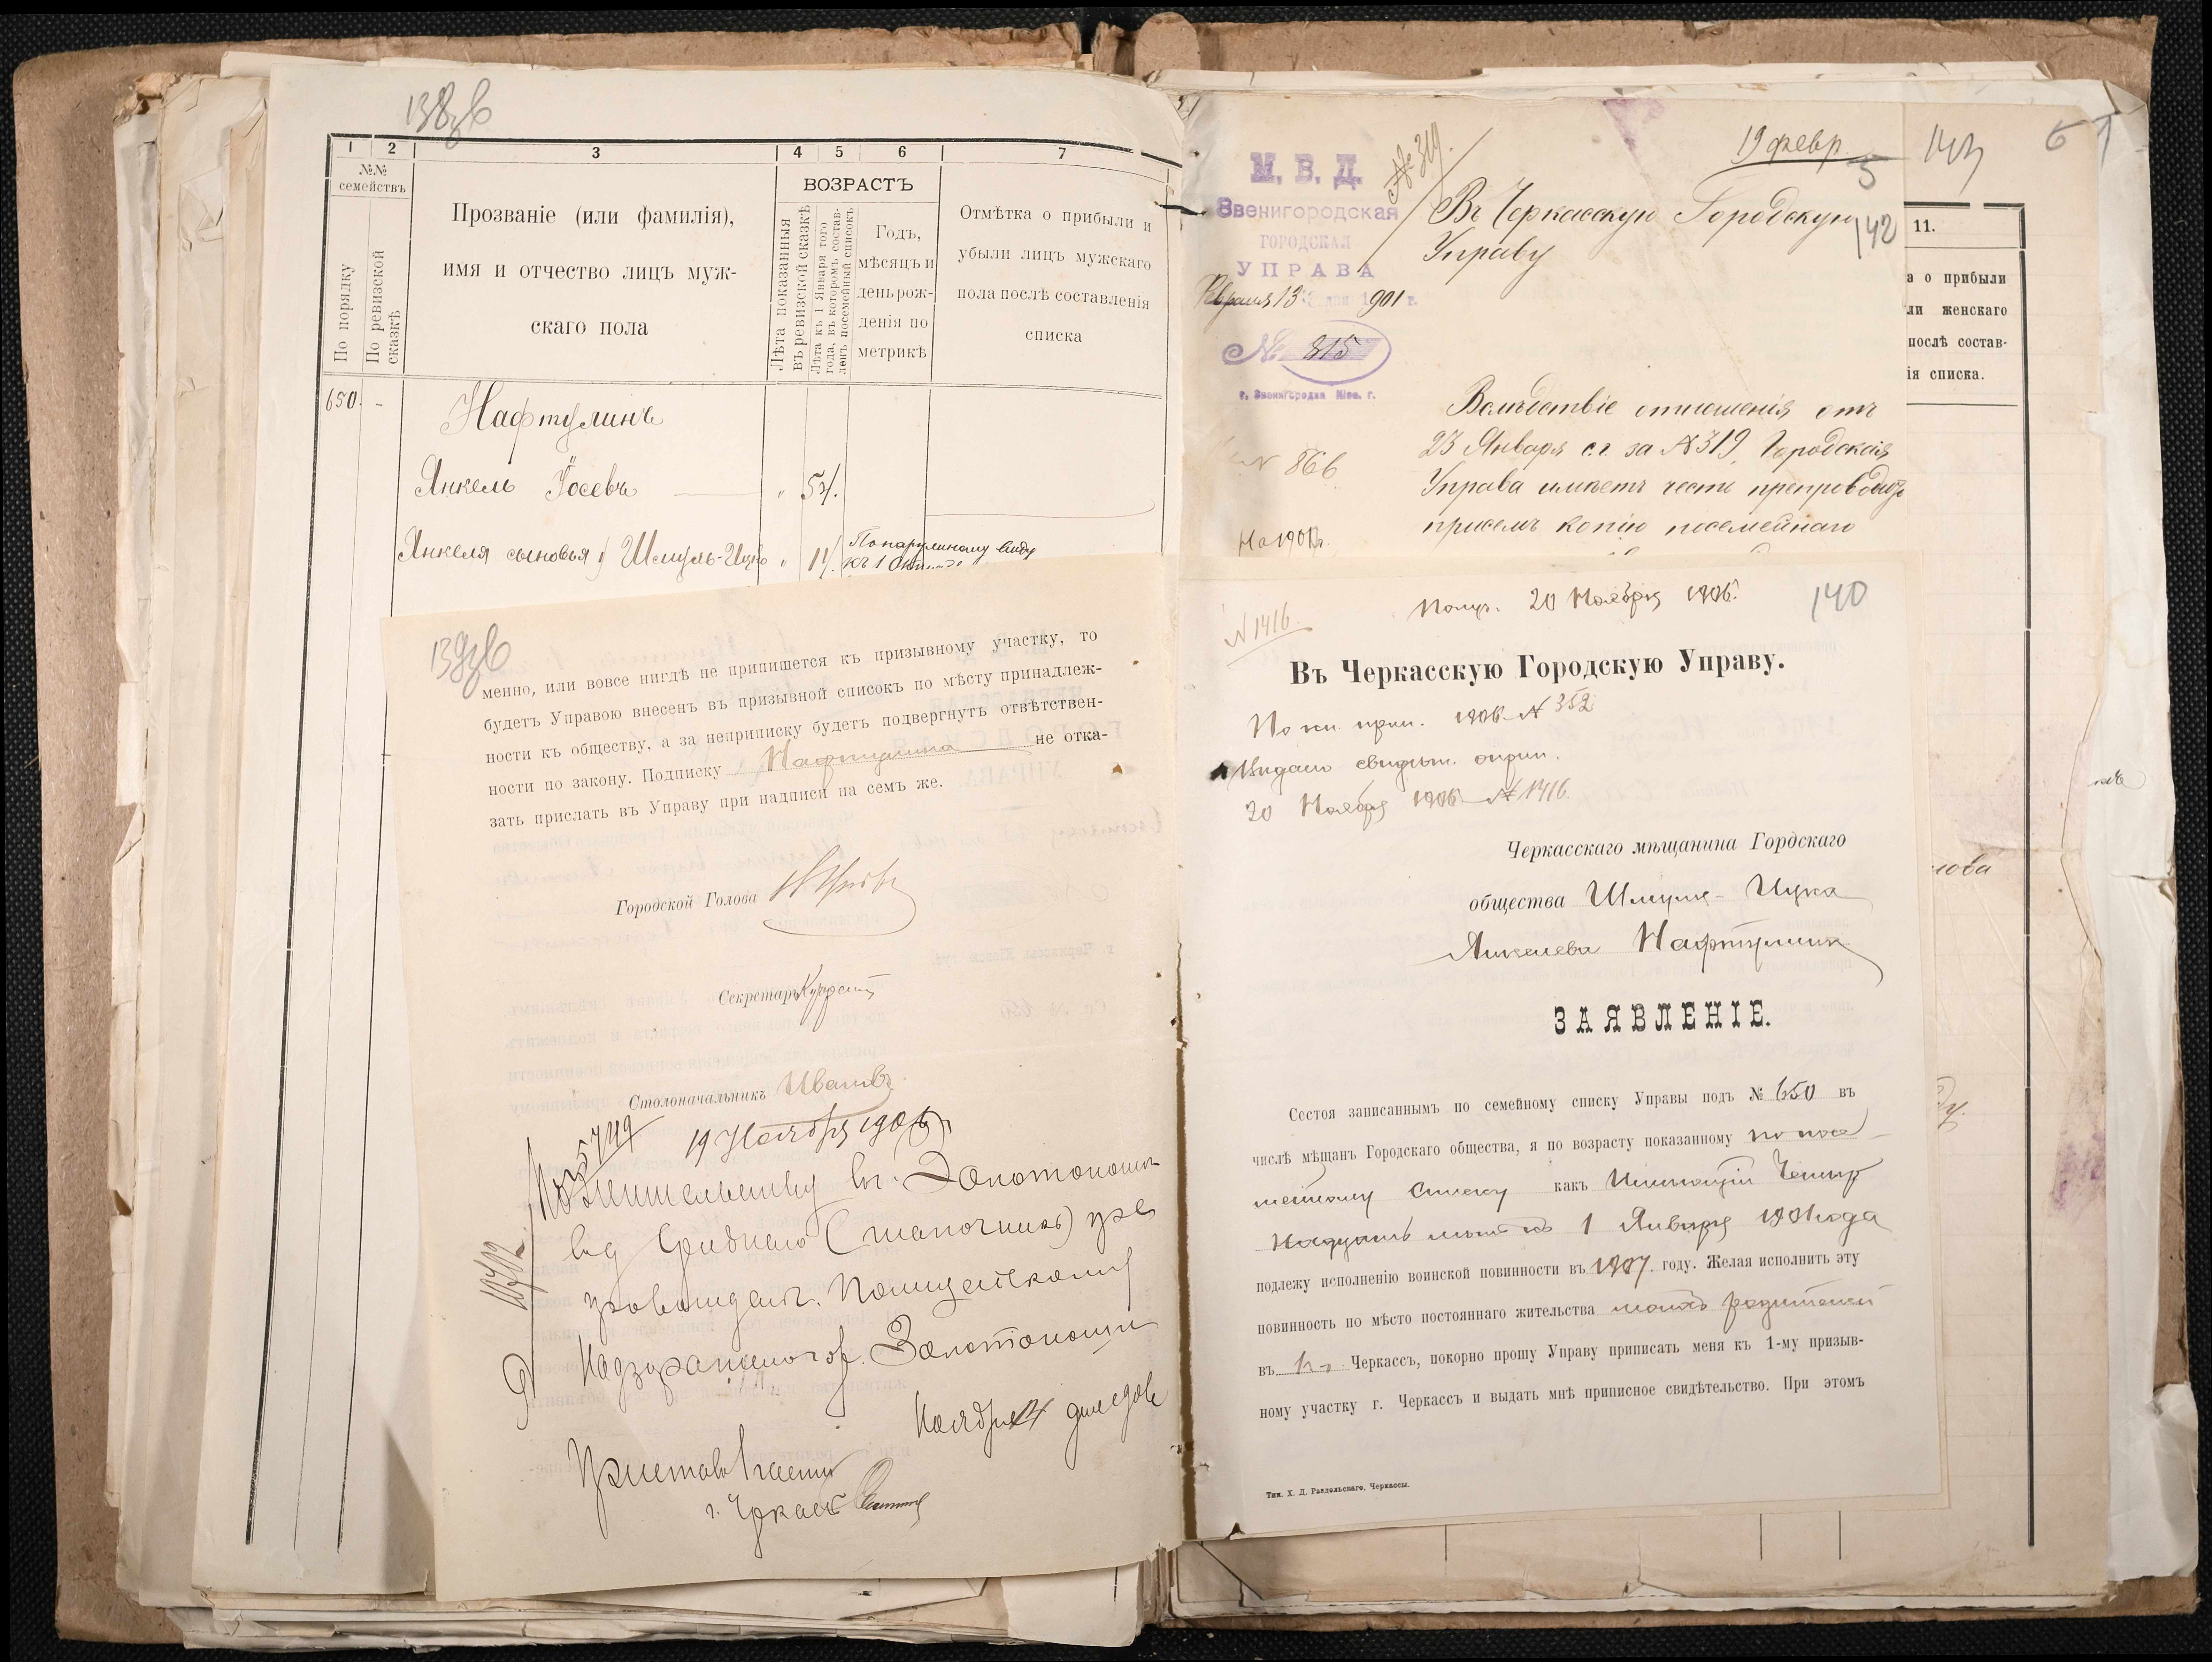 138об
1
2
3
4
5
6
7
№№
семействъ
По порядку
По ревизской
сказкѣ
Прозваніе (или фамилія),
имя и отчество лицъ муж-
скаго пола
ВОЗРАСТЪ
Лѣта показанныя
въ ревизской сказкѣ
Лѣта къ 1 Января того
года, въ которомъ состав-
ленъ посемейный списокъ
Годъ,
мѣсяцъ и
день рож-
денія по
метрикѣ
Отмѣтка о прибыли и
убыли лицъ мужскаго
пола послѣ составленія
списка
650. -
Нафтулинъ
Янкель Іосевъ " 54.
Янкеля сыновья 1) Шмуль-Ицко " 14.
По наружному виду
къ 1
139об
менно, или вовсе нигдѣ не припишется къ призывному участку, то
будетъ Управою внесенъ въ призывной списокъ по мѣсту принадлеж-
ности къ обществу, а за неприписку будетъ подвергнутъ отвѣтствен-
ности по закону. Подписку Нафтулина не отка-
зать прислать въ Управу при надписи на семъ же.
Городской Голова
Секретарь
Столоначальникъ Ивановъ
№ 5749
19 Ноября 1906 г.
По жительству въ г. Золотоноши
Полицейскому
Надзирателю гор. Золотоноши
Ноября дня
Приставъ 1 части
г. Черкассъ
М. В. Д.
Звенигородская
ГОРОДСКАЯ
УПРАВА
Февраля 13 дня 1901 г.
№ 815
г. Звенигородка Кіев. г.
№ 319.
19 февр.
5
142
Въ Черкасскую Городскую
Управу
№ 866
Вслѣдствіе отношенія отъ
23 Января с.г. за № 319, Городская
Управа имѣетъ честь препроводить
присемъ копію посемейнаго
143
11.
а о прибыли
ли женскаго
послѣ состав-
ія списка.
140
№ 1416.
Получ. 20 Ноября 1906.
Въ Черкасскую Городскую Управу.
По кн. прип. 1906 № 352
Выдано свидѣт. о прип.
20 Ноября 1906 № 1416.
Черкасскаго мѣщанина Гордскаго
общества Шмуля-Ицка
Янкелева Нафтулина
ЗАЯВЛЕНІЕ.
Состоя записаннымъ по семейному списку Управы подъ № 650 въ
числѣ мѣщанъ Городскаго общества, я по возрасту показанному по посе-
мейному списку какъ имѣющій четыр
надцать лѣтъ къ 1 Января 1901 года
подлежу исполненію воинской повинности въ 1907 году. Желая исполнить эту
повинность по мѣсто постояннаго жительства моихъ родителей
въ г. Черкассъ, покорно прошу Управу приписать меня къ 1-му призыв-
ному участку г. Черкассъ и выдать мнѣ приписное свидѣтельство. При этомъ
Тип. Х. Д. Раздольскаго, Черкассы.